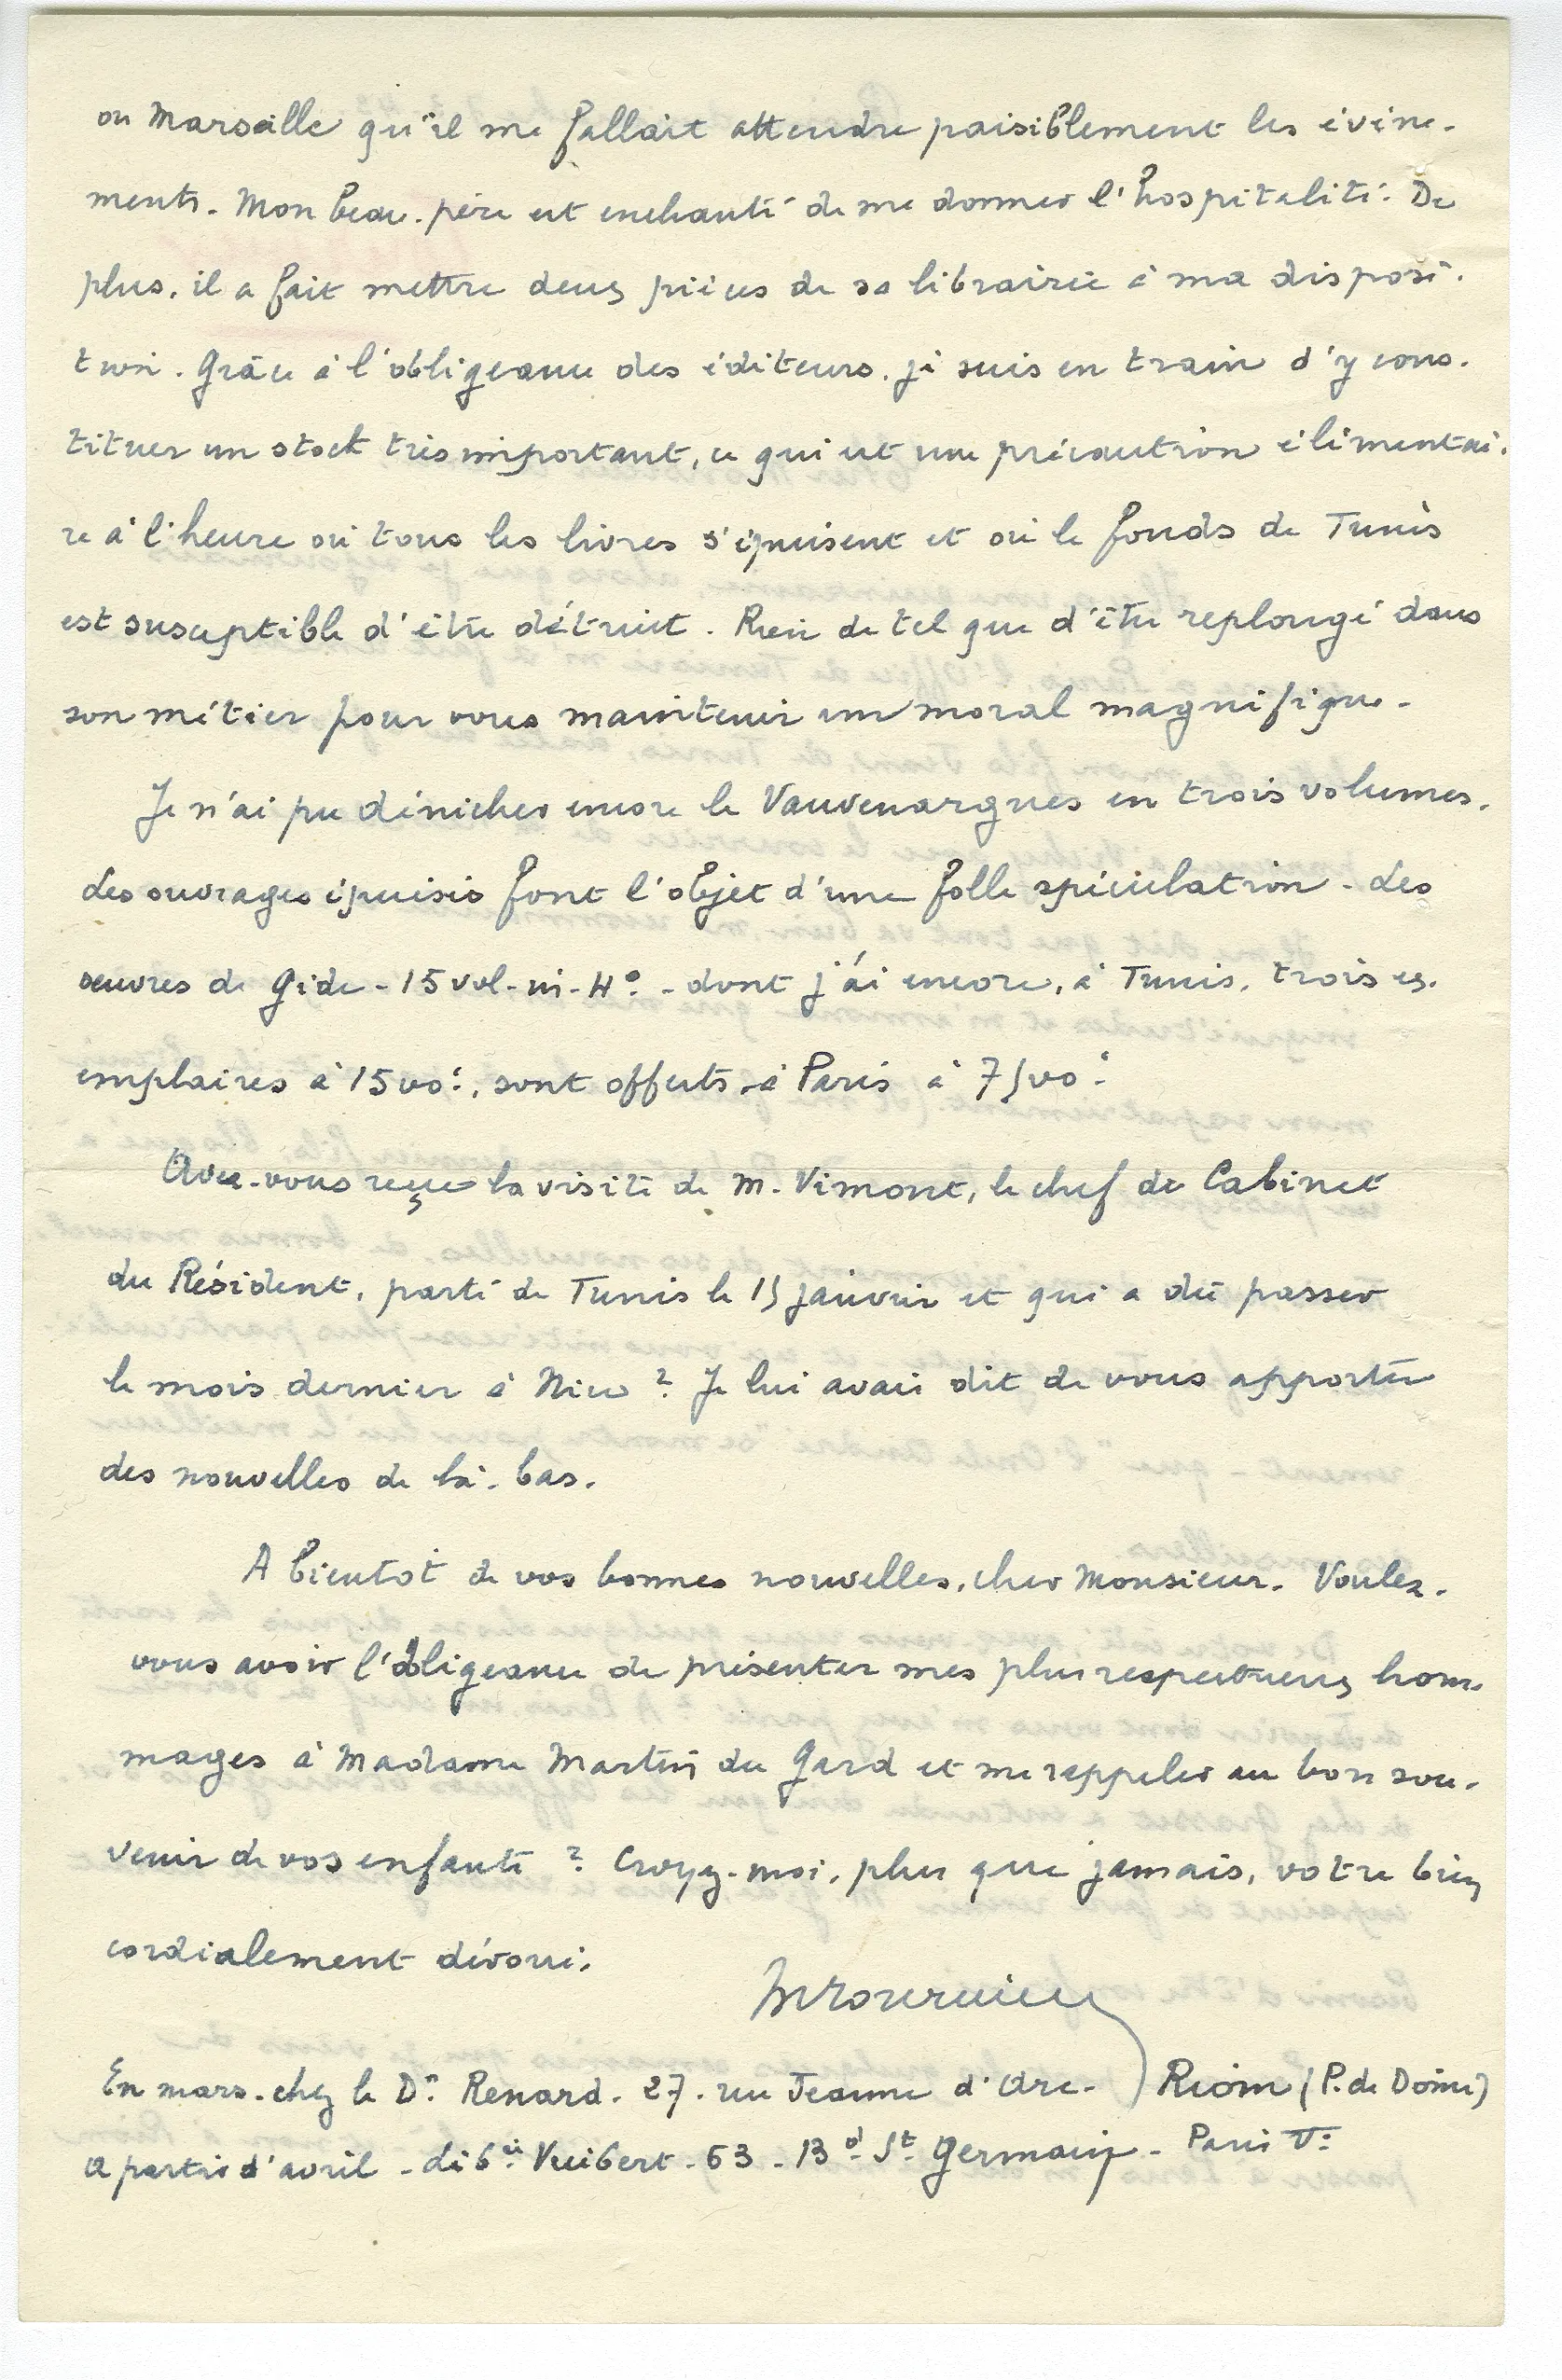 ou Marseille qu'il me fallait attendre paisiblement les évène-
ments. Mon beau-père est enchanté de me donner l'hospitalité. De
plus, il a fait mettre deux pièces de sa librairie à ma disposi-
tion. Grâce à l'obligeance des éditeurs, je suis en train d'y cons-
tituer un stock très important, ce qui est une précaution élémentai-
re à l'heure où tous les livres s'épuisent et où le fonds de Tunis
est susceptible d'être détruit. Rien de tel que d'être replongé dans
son métier pour vous maintenir un moral magnifique.
Je n'ai pu dénicher encore le Vauvenargues en trois volumes.
Les ouvrages épuisés font l'objet d'une folle spéculation. Les
œuvres de Gide - 15 vol. in-4° - dont j'ai encore, à Tunis, trois ex-
emplaires à 1500f, sont offerts à Paris à 7500f
Avez-vous reçu la visite de M. Vimont, le chef de Cabinet
du Résident, parti de Tunis le 15 janvier et qui a dû passer
le mois dernier à Nice ? Je lui avais dit de vous apporter
des nouvelles de là-bas.
A bientôt de vos bonnes nouvelles, cher Monsieur. Voulez-
vous avoir l'obligeance de présenter mes plus respectueux hom-
mages à Madame Martin du Gard et me rappeler au bon sou-
venir de vos enfants ? Croyez-moi, plus que jamais, votre bien
cordialement dévoué.
En mars - chez le Dr Renard - 27 - rue Jeanne d'Arc - Riom (P. de Dôme)
A partir d'avril - libie Vuibert - 63 - Bd St Germain - Paris Ve